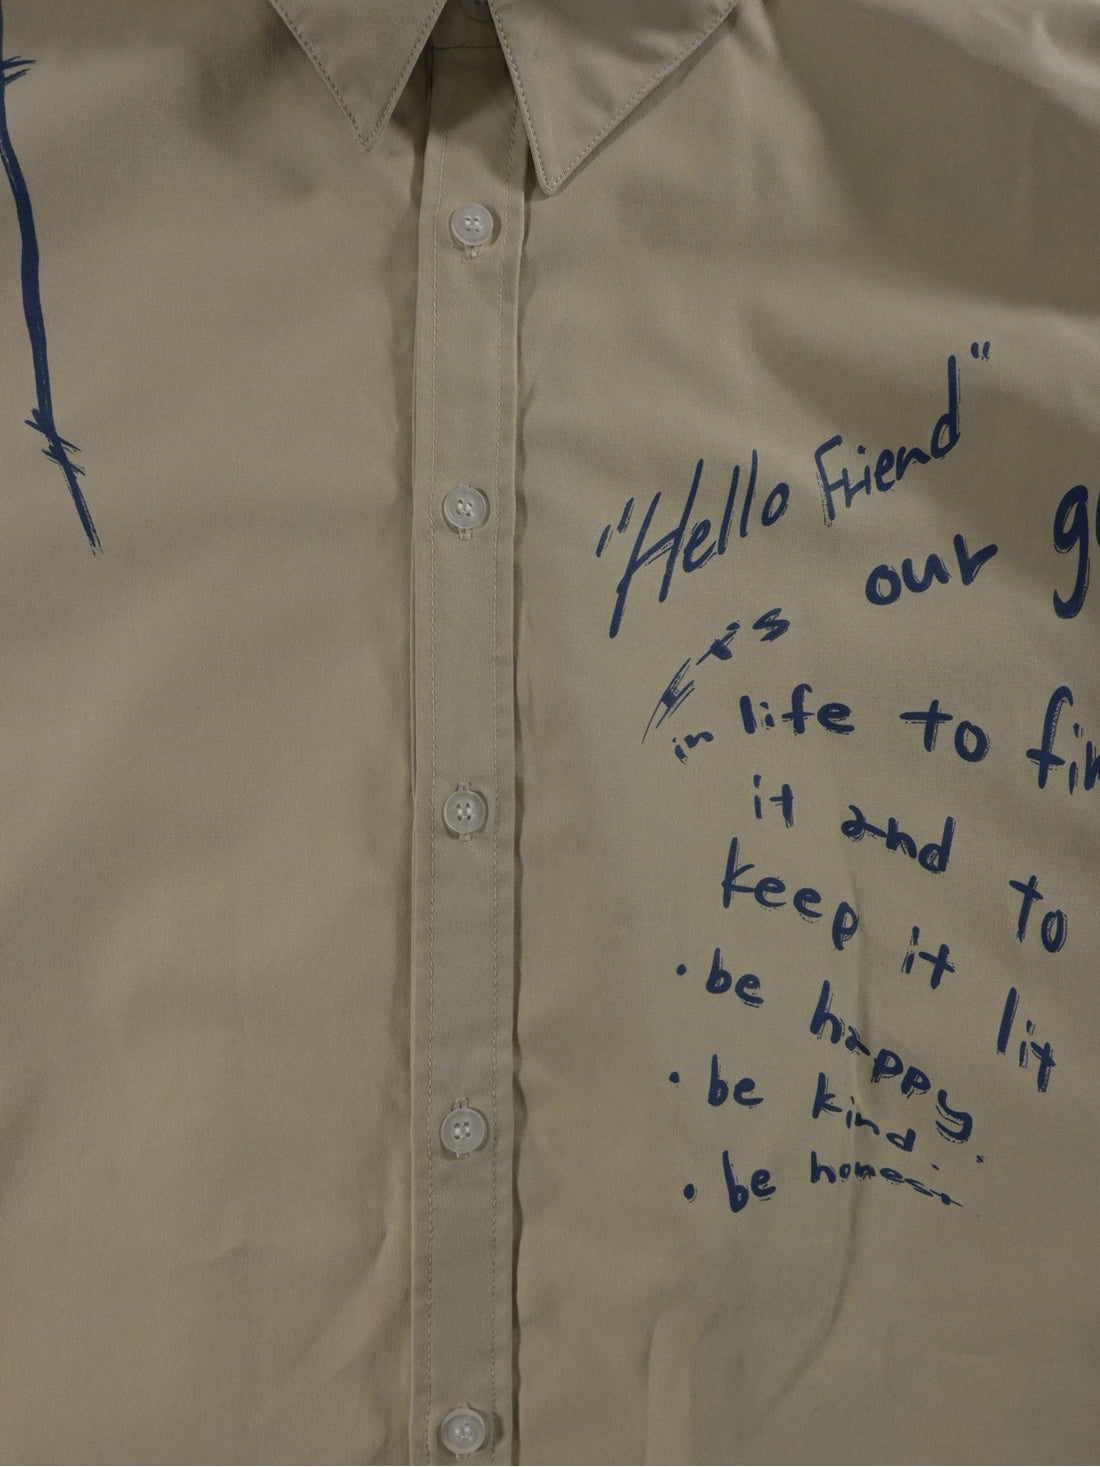 "Hello Friend"
our
in life to
it and to
keep it lit
• be happy
• be kind
• be honest